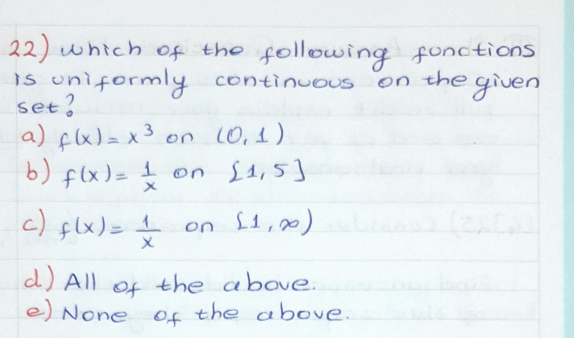 22) which of the following functions
is uniformly continuous on the given
set?
a) f(x) = x³ on (0,1)
b) f(x) = 1/x on [1,5]
c) f(x) = 1/x on [1,∞)
d) All of the above.
e) None of the above.